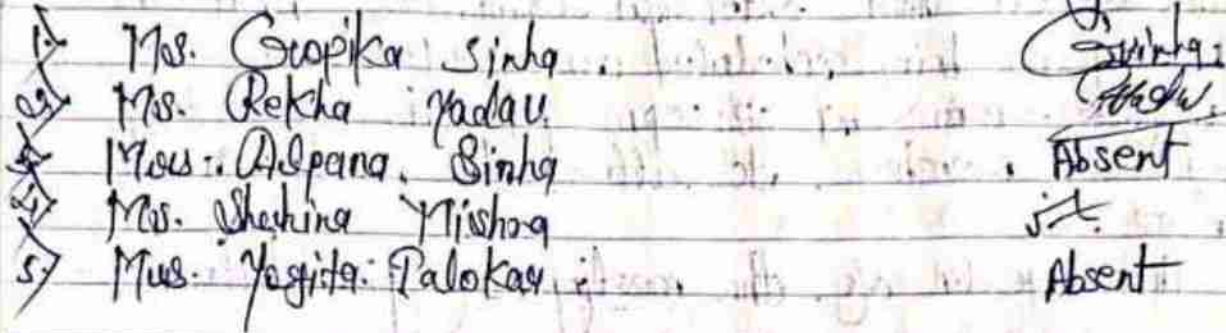 1.) Ms. Gropika Sinha. Gsinha.
2.) Ms. Rekha Yadav.
3.) Mrs. Alpana. Sinha . Absent
4.) Ms. Mishra
5.) Mrs. Yogita. Palokar Absent